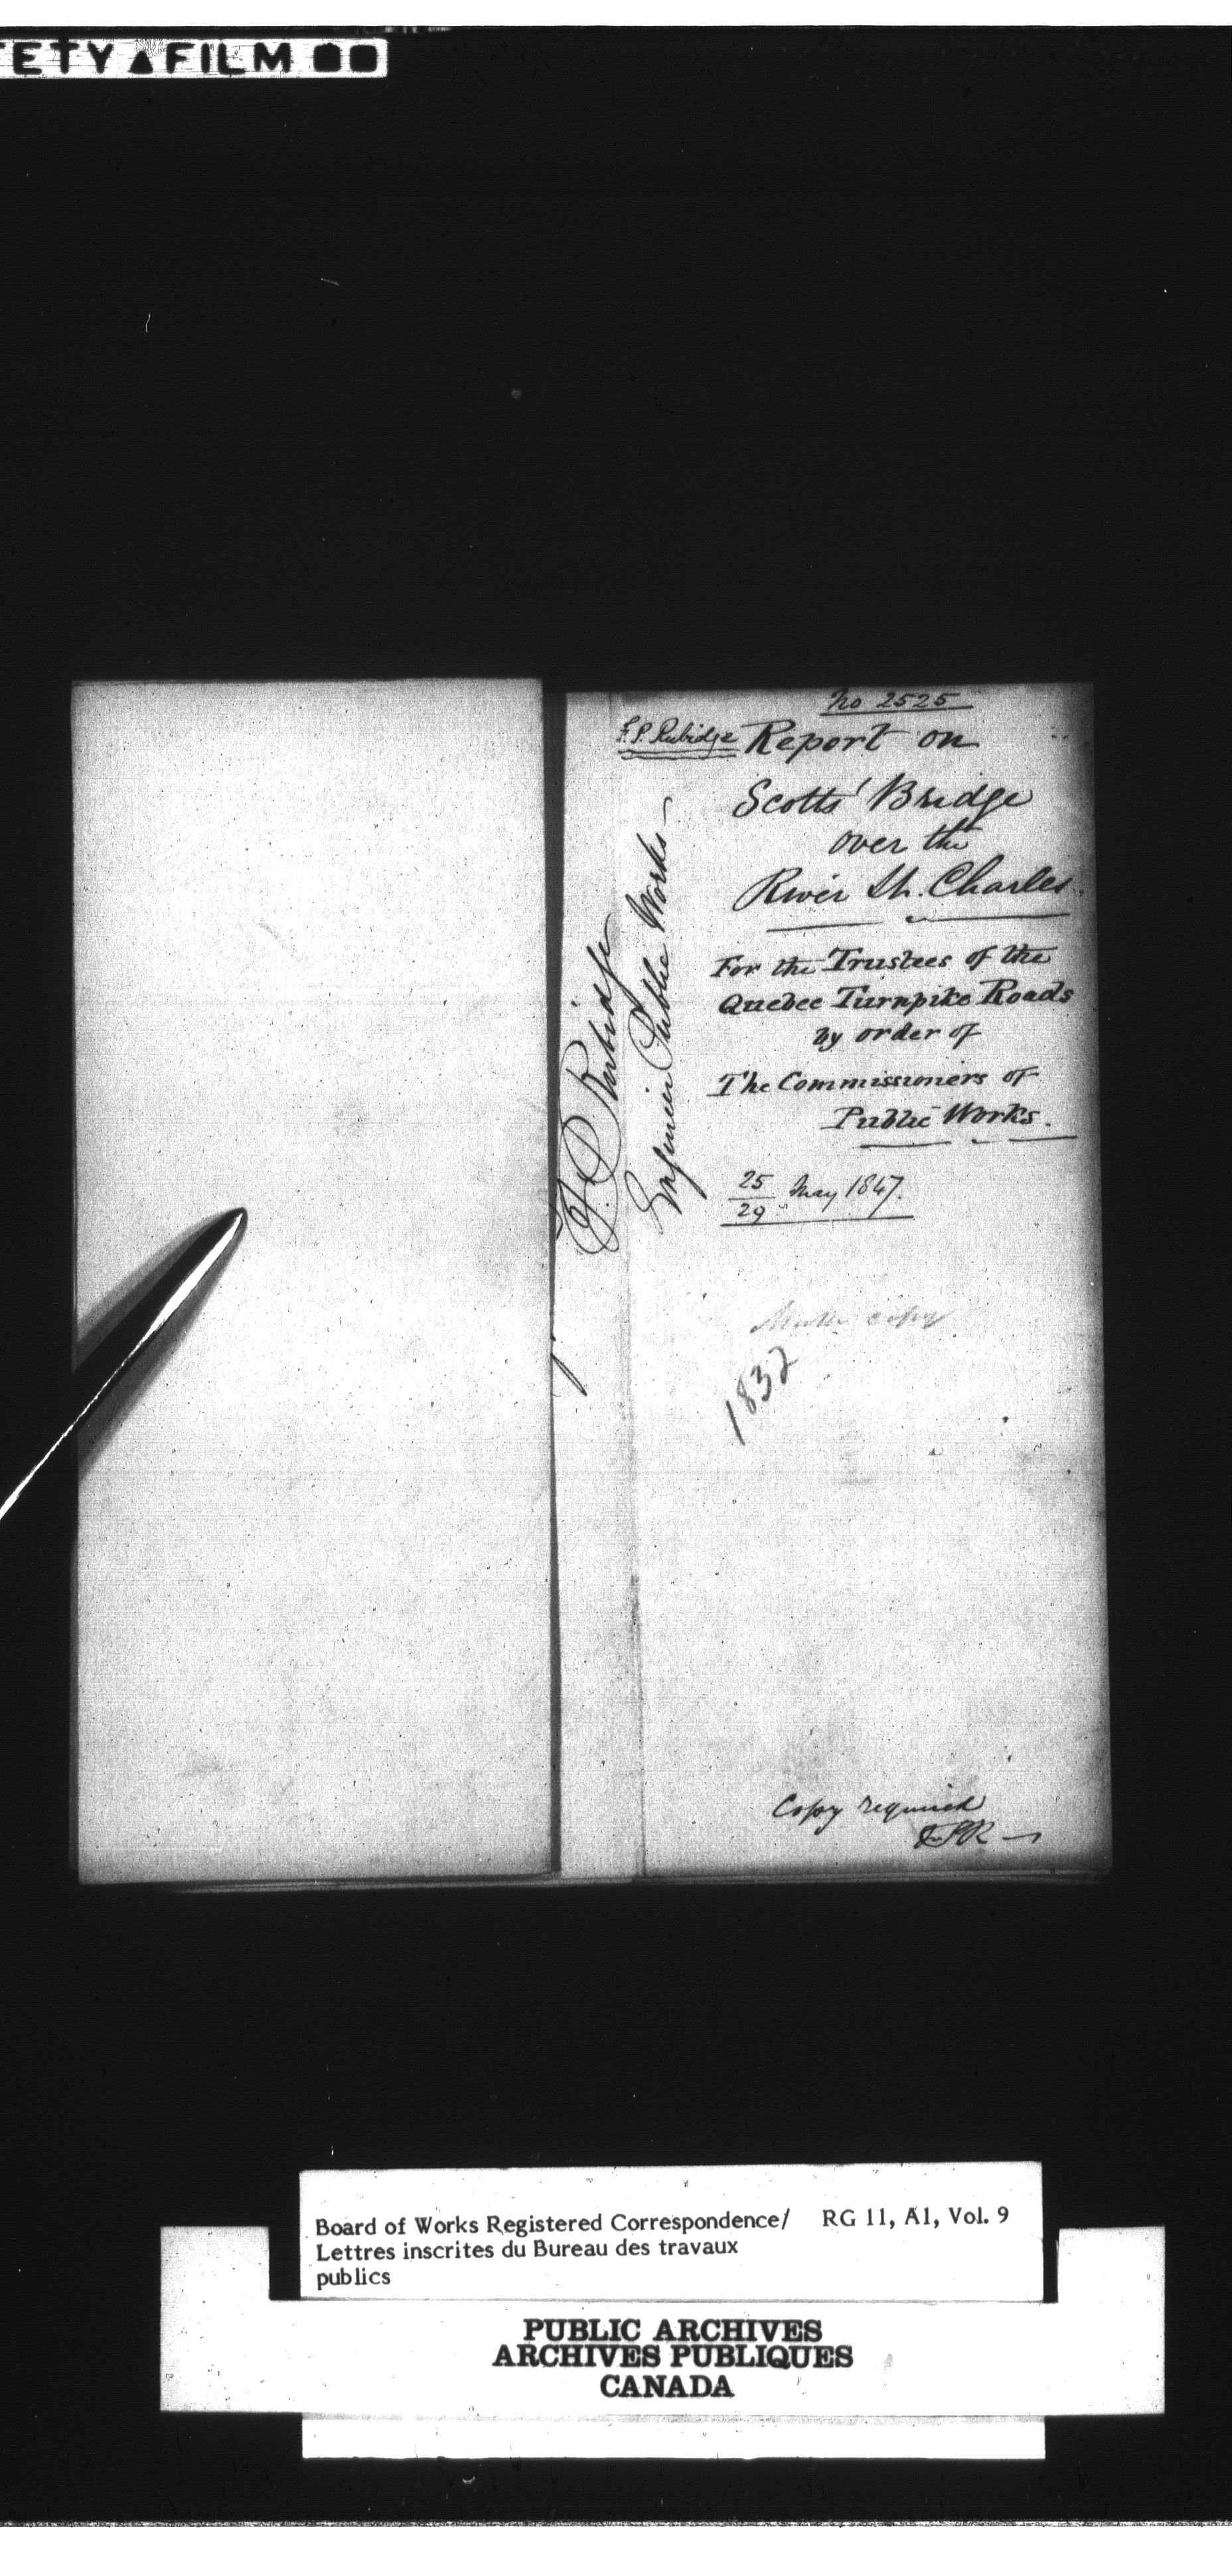 ETY▲FILM
No 2525
F. P. Rubidge
Report on
Scotts' Bridge
over the
River St. Charles.
For the Trustees of the
Quebec Turnpike Roads
by order of
The Commissioners of
Public Works.
25/29 May 1847.
F. P. Rubidge
Engineer Public Works
copy
1832
Copy required
FPR
Board of Works Registered Correspondence/ RG 11, A1, Vol. 9
Lettres inscrites du Bureau des travaux
publics
PUBLIC ARCHIVES
ARCHIVES PUBLIQUES
CANADA